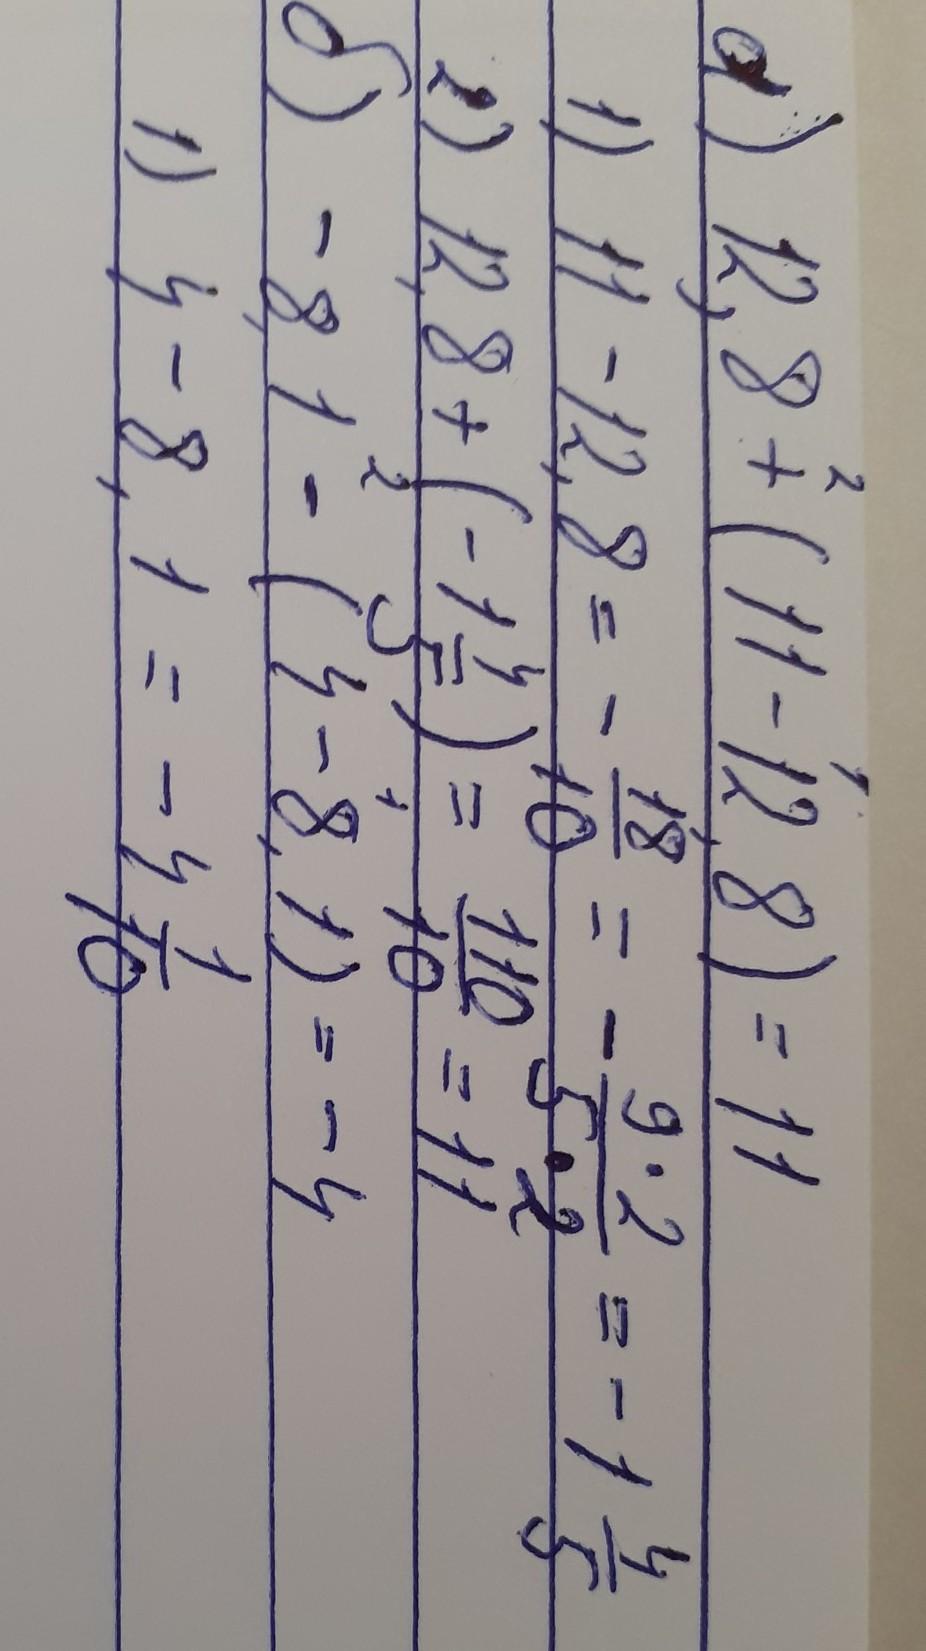 а) 12,8 +² (11 -¹ 12,8) = 11
1) 11 - 12,8 = - 18/10 = - 9·2/5·2 = - 1 4/5
2) 12,8 + (- 1 4/5) = 110/10 = 11
б) - 8,1 -² (4 -¹ 8,1) = - 4
1) 4 - 8,1 = - 4 1/10